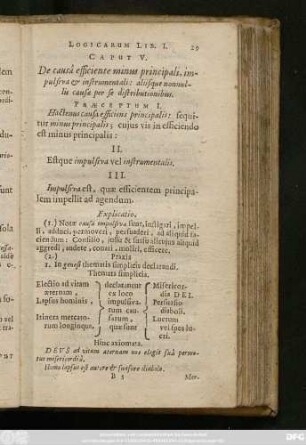 LOGICARUM LIB. I. 29
CAPUT V.
De causâ efficiente minus principali, im-
pulsiva & instrumentali: aliisque nonnul-
lis causæ per se distributionibus.
PRÆCEPTUM I.
Hactenus causa efficiens principalis: sequi-
tur minus principalis; cujus vis in efficiendo
est minus principalis:
II.
Estque impulsiva vel instrumentalis.
III.
Impulsiva est, quæ efficientem principa-
lem impellit ad agendum.
Explicatio.
(1.) Notæ causæ impulsivæ sunt, instigari, impel-
li, adduci, permoveri, persuaderi, ad aliquid fa-
ciendum: Consilio, jussu & suasu alicujus aliquid
aggredi, audere, conari, moliri, efficere.
(2.) Praxis
1. In genesi thematis simplicis declarandi.
Themata simplicia.
Electio ad vitam
æternam,
Lapsus hominis,
Itinera mercato-
rum longinqua.
declarantur
ex loco
impulsiva-
rum cau-
sarum,
quæ sunt
Misericor-
dia DEI.
Persuasio
diaboli.
Lucrum
vel spes lu-
cri.
Hinc axiomata.
DEUS ad vitam æternam nos elegit suâ permo-
tus misericordiâ.
Homo lapsus est autore & suasore diabolo.
B 5 Mer-